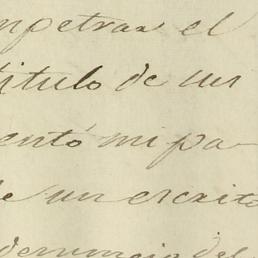 mpetrar el
título de un
entó mi pa-
de un escrito
denuncio del